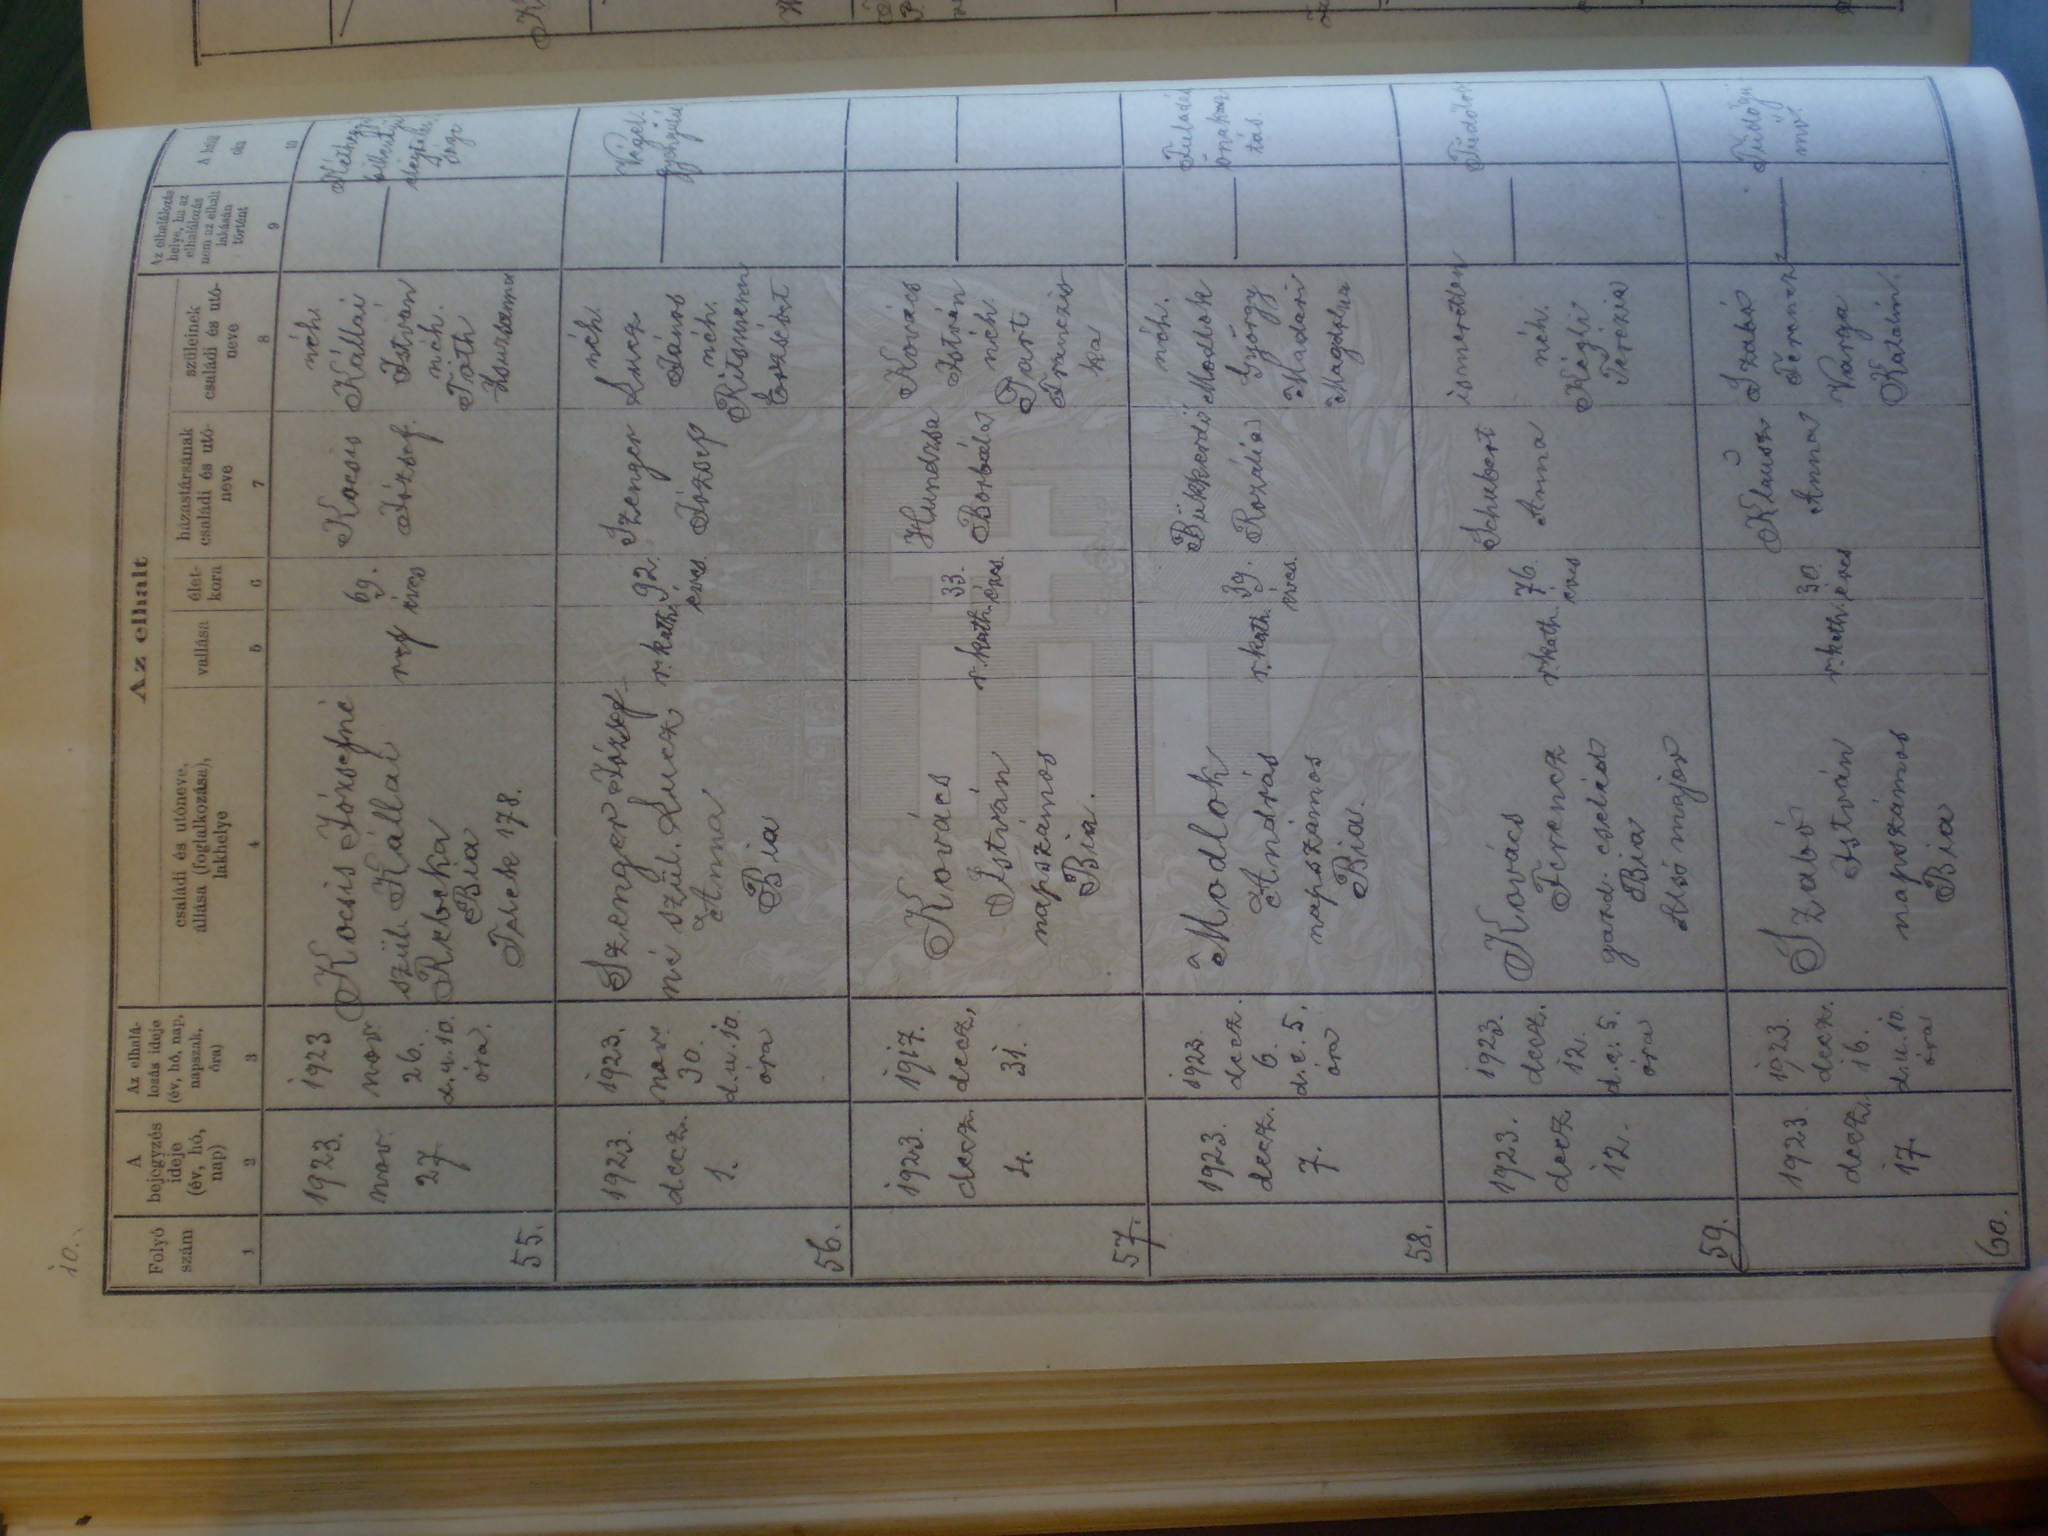 10.
Az elhalt
Folyó
szám
A
bejegyzés
ideje
(év, hó,
nap)
Az elhalá-
lozás ideje
(év, hó, nap,
napszak,
óra)
családi és utóneve,
állása (foglalkozása),
lakhelye
vallása
élet-
kora
házastársának
családi és utó-
neve
szüleinek
családi és utó-
neve
Az elhalálozás
helye, ha az
elhalálozás
nem az elhalt
lakásán
történt
A halál
oka
1
2
3
4
5
6
7
8
9
10
55.
1923.
nov.
27
1923
nov.
26.
d.u. 10.
óra.
Kocsis Józsefné
szül. Kállai
Rebeka
Bia
Telek 178.
ref
69.
éves
Kocsis
József.
néh.
Kállai
István
néh.
Tóth
Zsuzsanna
56.
1923.
decz.
1.
1923.
nov.
30.
d.u. 10.
óra
Szenger József-
né szül. Lucz
Anna
Bia
r.kath.
92.
éves.
Szenger
József
néh.
Lucz
János
néh.
Erzsébet
Végel.
gyengülés
57.
1923.
decz.
4.
1917.
decz.
31.
Kovács
István
napszámos
Bia.
r.kath.
33.
éves.
Hundzsa
Borbála
Kovács
István
néh.
Part
Franczis
ka
58.
1923.
decz.
7.
1923.
decz.
6.
d.e. 5.
óra
Modlok
András
napszámos
Bia.
r.kath.
39.
éves.
Bükkerdi
Rozália
néh.
Modlok
György
Madari
Magdolna
59.
1923.
decz
12.
1923.
decz.
12.
d.e. 5.
óra
Kovács
Ferencz
gazd. cseléd
Bia
Alsó major
r.kath.
76.
éves
Schubert
Anna
ismeretlen
néh.
Kághi
Terézia
60.
1923
decz.
17.
1923.
decz.
16.
d.u. 10.
óra
Szabó
István
napszámos
Bia
r.kath.
30.
éves
Klausz
Anna
Szabó
Ferencz
Varga
Katalin.